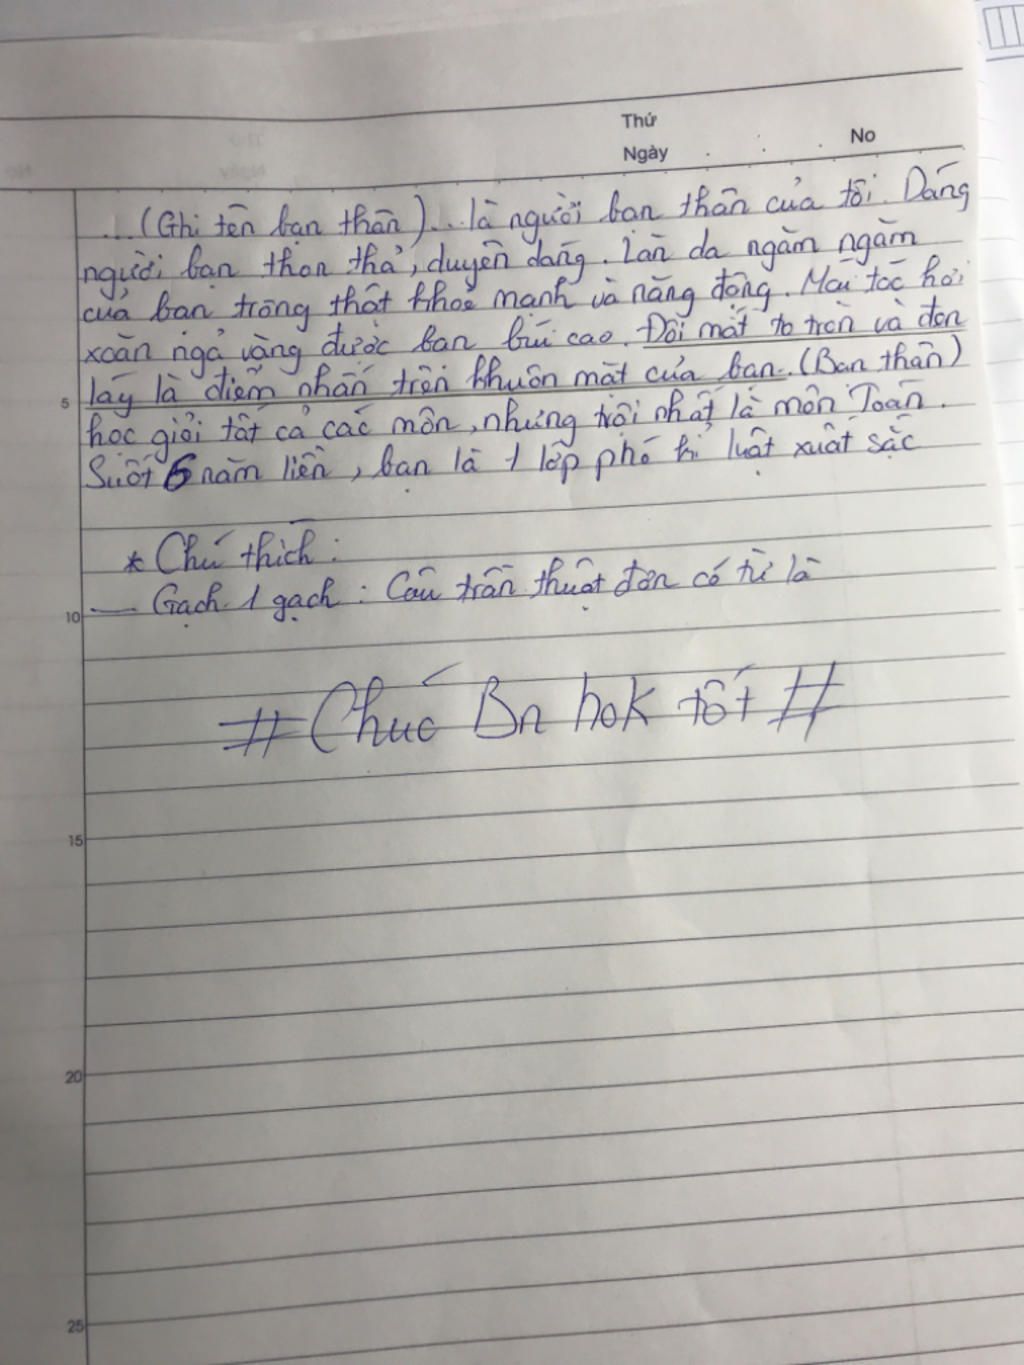 Thứ
Ngày . : . No
...(Ghi tên bạn thân)... là người bạn thân của tôi. Dáng
người bạn thon thả, duyên dáng. Làn da ngăm ngăm
của bạn trông thật khoẻ mạnh và năng động. Mái tóc hơi
xoăn ngả vàng được bạn búi cao. Đôi mắt to tròn và đen
láy là điểm nhấn trên khuôn mặt của bạn. (Bạn thân)
học giỏi tất cả các môn, nhưng trội nhất là môn Toán.
Suốt 6 năm liền, bạn là 1 lớp phó kỉ luật xuất sắc
* Chú thích:
— Gạch 1 gạch: Câu trần thuật đơn có từ là
# Chúc Bn hok tốt #
5
10
15
20
25